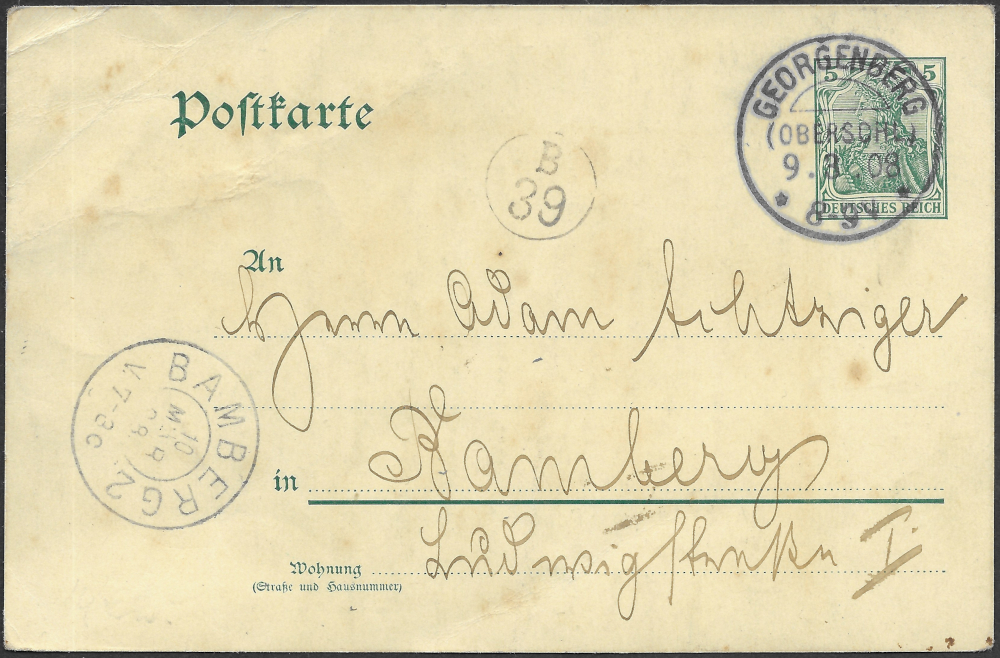 Postkarte
5 5
GEORGENBERG
(OBERSCHL)
9.3.08
8-9V
DEUTSCHES REICH
B
39
An
Herrn Adam Achtziger
BAMBERG 2
10
MAR
V.7-8
in Bamberg
Ludwigstraße I.
Wohnung
(Straße und Hausnummer)